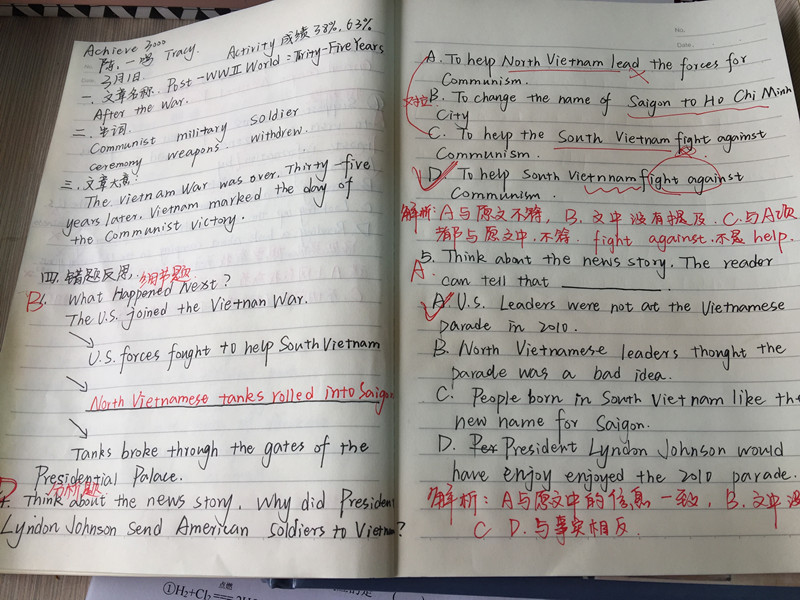 Achieve 3000
陈,一鸣 Tracy. Activity 成绩 38%, 63%
3月1日.
一. 文章名称. Post-WWII World: Thrity-Five Years
After the War.
二. 生词.
Communist military soldier
ceremony weapons. withdrew.
三. 文章大意:
The Vietnam War was over. Thirty-five
years later, Vietnam marked the day of
the Communist victory.
四. 错题反思. 细节题
B. What Happened Next?
The U.S. joined the Vietnan War.
U.S. forces fought to help South Vietnam
North Vietnamese tanks rolled into Saigon
Tanks broke through the gates of the
Presidential Palace.
分析题
D 4. Think about the news story. Why did President
Lyndon Johnson send American soldiers to Vietnam?
A. To help North Vietnam lead the forces for
Communism.
B. To change the name of Saigon to Ho Chi Minh
City
C. To help the South Vietnam fight against
Communism.
D. To help South Vietnnam fight against
Communism.
解析: A与原文不符, B. 文中没有提及. C.与A项
都与原文中.不符. fight against.不是help.
5. Think about the news story. The reader
A. can tell that
A. U.S. Leaders were not at the Vietnamese
parade in 2010.
B. North Vietnamese leaders thonght the
parade was a bad idea.
C. People born in South Vietnam like the
new name for Saigon.
D. Per President Lyndon Johnson would
have enjoy enjoyed the 2010 parade.
解析: A与原文中的信息一致, B. 文中没
C D. 与事实相反.
No.
Date.
①H₂+Cl₂ 点燃